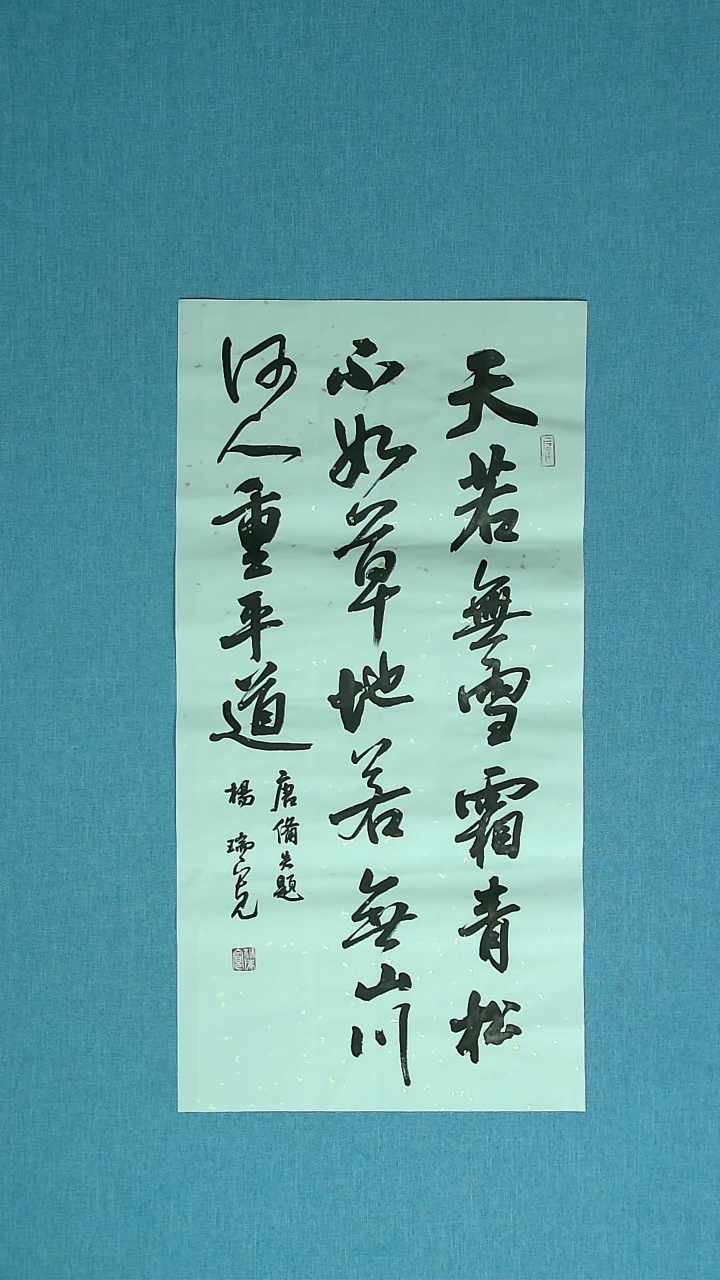 天若無雪霜青松
不如草地若無山川
何人重平道
唐備失題
楊瑞